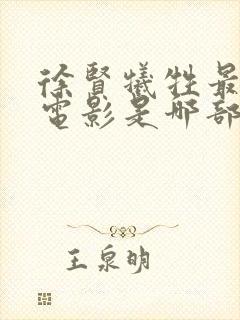 徐賢犧牲最
電影是哪部
王泉明